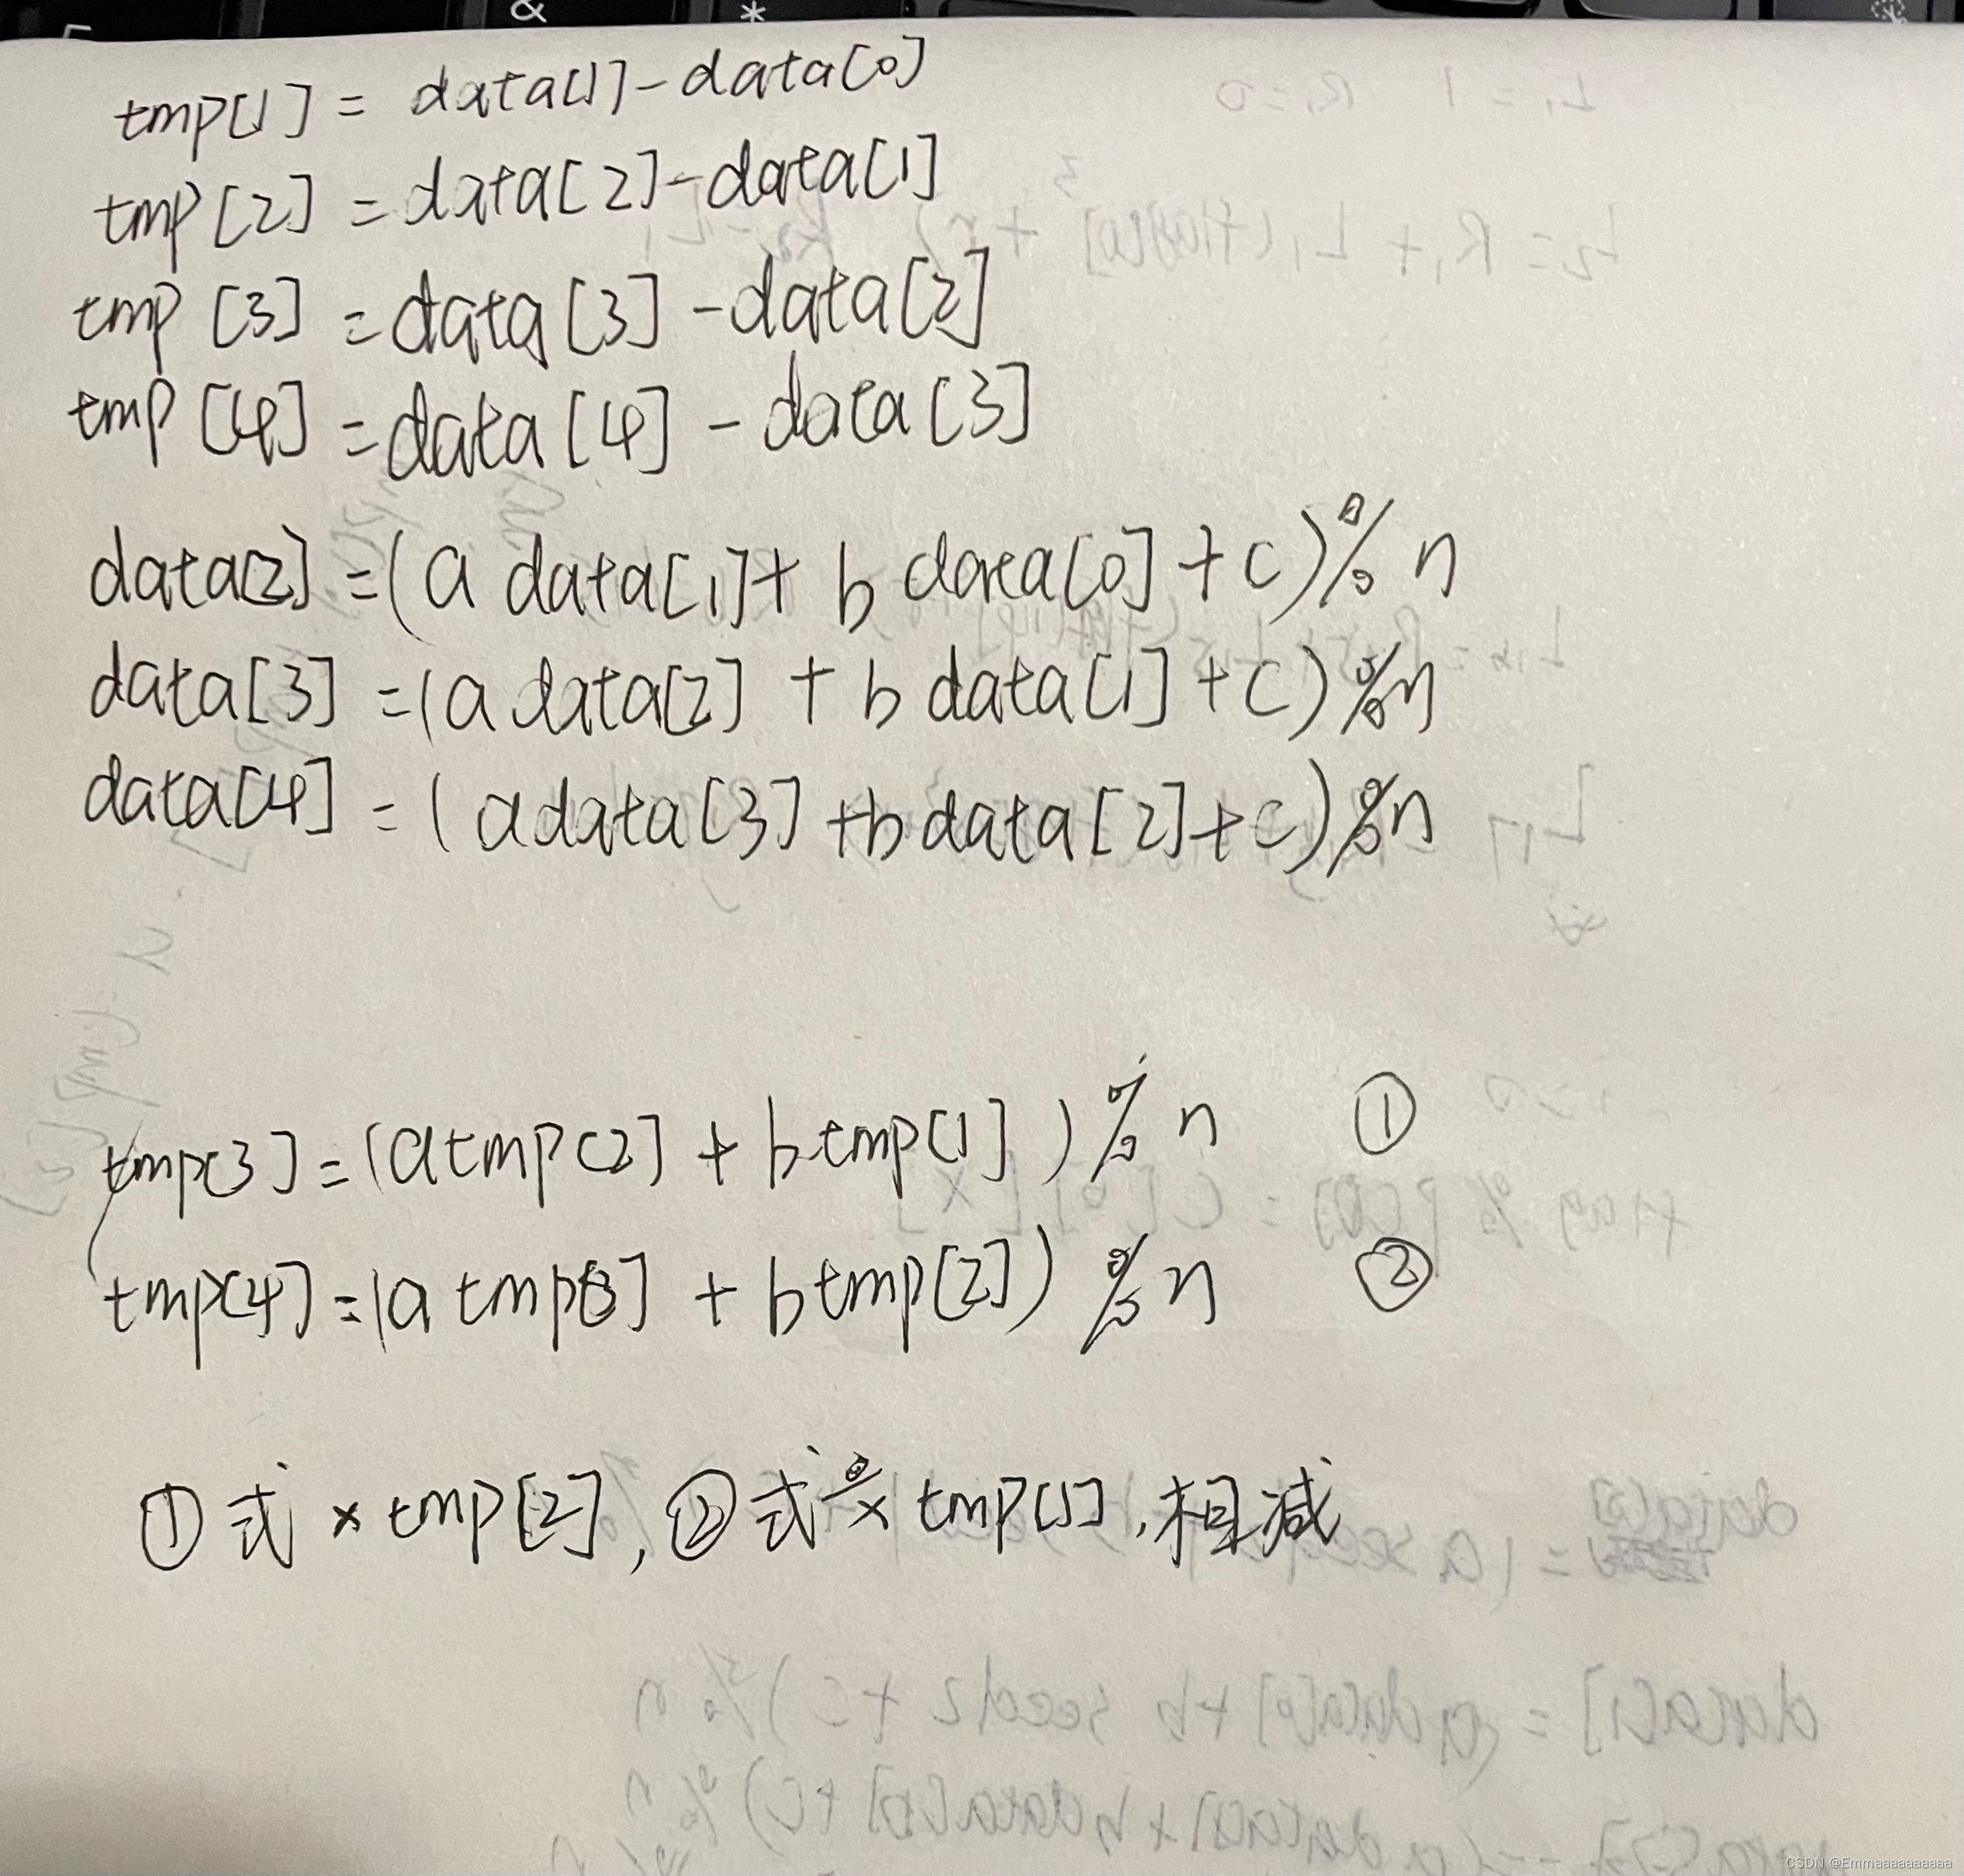 & *
tmp[1] = data[1]-data[0]
tmp[2] = data[2]-data[1]
tmp [3] = data[3] -data[2]
tmp [4] = data[4] - data[3]
data[2] =(a data[1]+ b data[0] +c)% n
data[3] =(a data[2] + b data[1] +c) %n
data[4] = (adata[3] +b data[2]+c) %n
tmp[3] = (atmp[2] + btmp[1] )% n ①
tmp[4] =(a tmp[3] + btmp[2]) % n ②
①式 × tmp[2], ②式 × tmp[1], 相减
CSDN @Emmaaaaaaaaaa